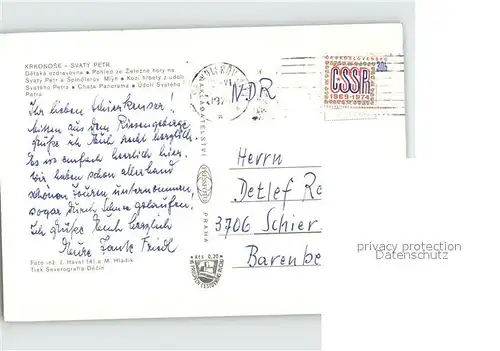 KRKONOŠE - SVATÝ PETR
Dětská ozdravovna • Pohled ze Železné hory na
Svatý Petr a Špindlerův Mlýn • Kozí hřbety z údolí
Svatého Petra • Chata Panorama • Údolí Svatého
Petra
Ihr lieben Schierkenser!
Mitten aus dem Riesengebirge
grüße ich Euch recht herzlich.
Es ist einfach herrlich hier.
Wir haben schon allerhand
schöne Touren unternommen,
sogar durch Schnee gelaufen.
Ich grüße Euch herzlich
Eure Tante Friedl
Foto inž. J. Havel (4) a M. Hladík
Tisk Severografia Děčín
NAKLADATELSTVÍ
PRESSFOTO
PRAHA
Kčs 0,30
NDR
ČESKOSLOVENSKO
30h
ČSSR
1969-1974
Herrn
Detlef Re
3706 Schier
Barenbe
privacy protection
DATENSCHUTZ